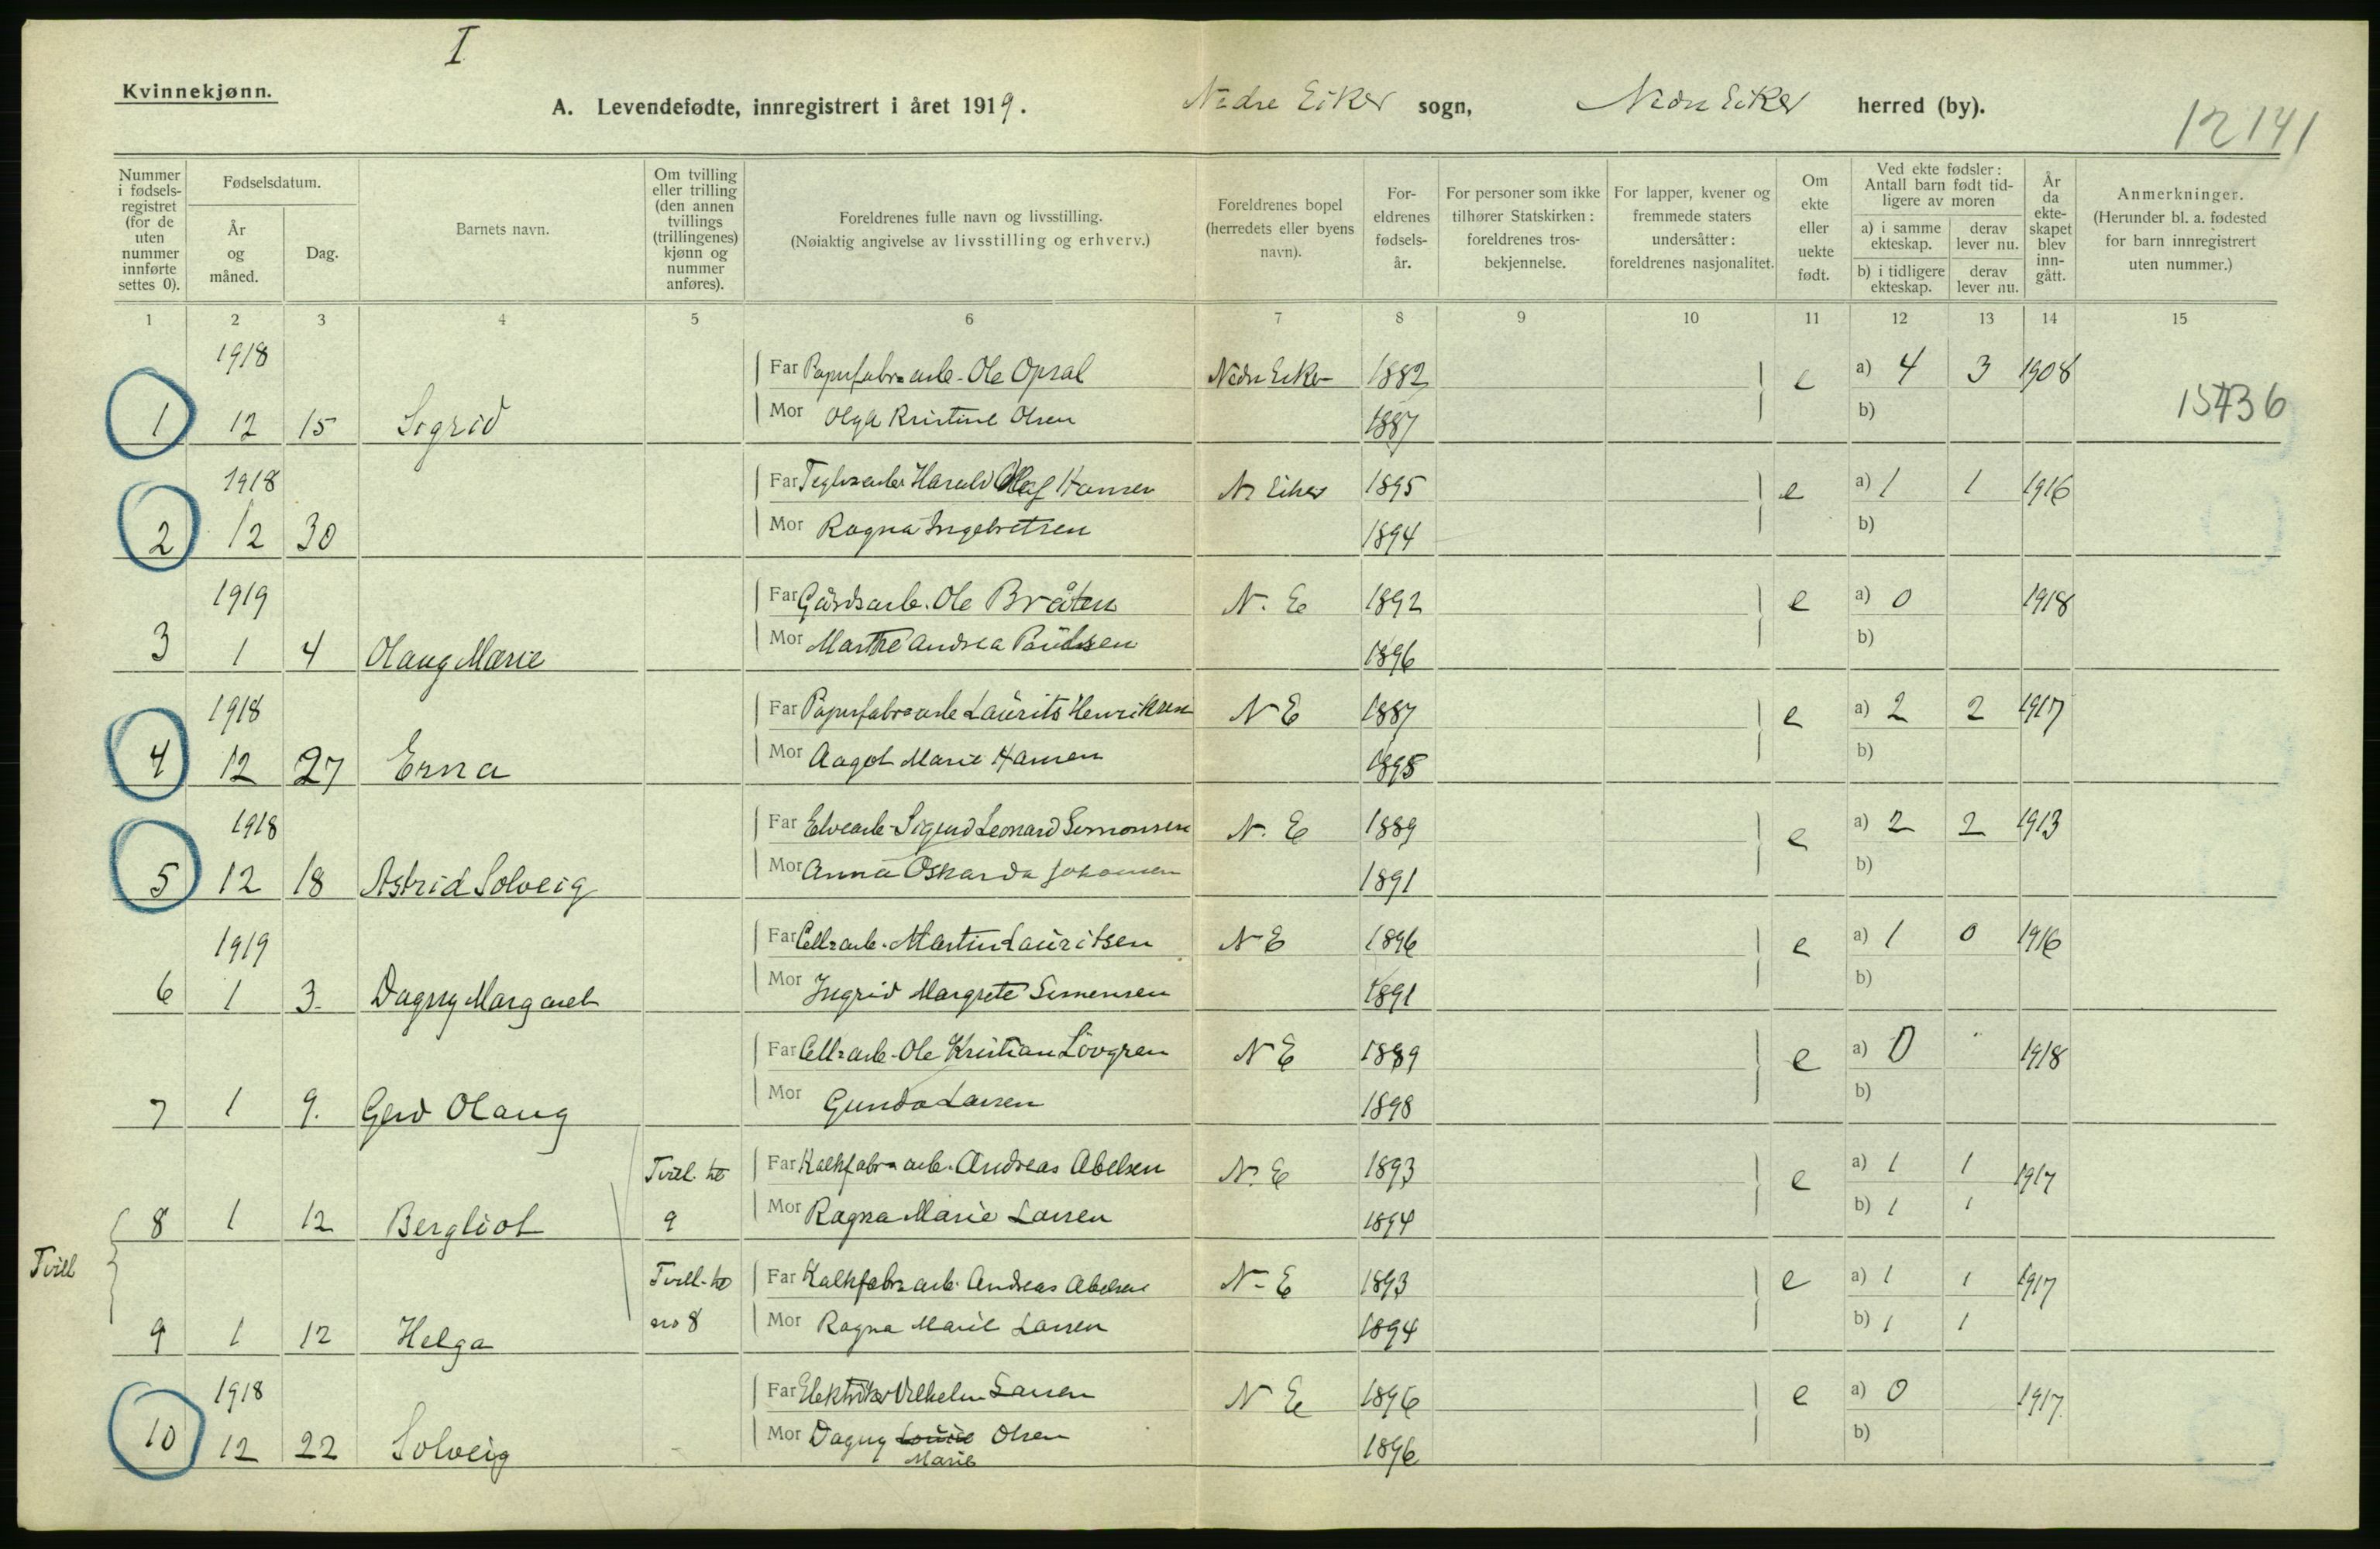 I
Kvinnekjønn.
A. Levendefødte, innregistrert i året 1919.
Nedre Eiker sogn, Nedre Eiker herred (by).
12141
Nummer i fødsels-registret (for de uten nummer innførte settes 0).
Fødselsdatum.
År og måned.
Dag.
Barnets navn.
Om tvilling eller trilling (den annen tvillings (trillingenes) kjønn og nummer anføres).
Foreldrenes fulle navn og livsstilling.
(Nøiaktig angivelse av livsstilling og erhverv.)
Foreldrenes bopel (herredets eller byens navn).
For-eldrenes fødsels-år.
For personer som ikke tilhører Statskirken: foreldrenes tros-bekjennelse.
For lapper, kvener og fremmede staters undersåtter: foreldrenes nasjonalitet.
Om ekte eller uekte født.
Ved ekte fødsler: Antall barn født tid-ligere av moren
a) i samme ekteskap.
derav lever nu.
b) i tidligere ekteskap.
derav lever nu.
År da ekte-skapet blev inn-gått.
Anmerkninger.
(Herunder bl. a. fødested for barn innregistrert uten nummer.)
1 2 3 4 5 6 7 8 9 10 11 12 13 14 15
1918 Far Papirfabr=arb. Ole Opsal Nedre Eiker 1882 e a) 4 3 1908
1 12 15 Sigrid Mor Olga Kristine Olsen 1887 b) 15736
1918 Far Teglv=arb. Harald Olaf Hansen N. Eiker 1895 e a) 1 1 1916
2 12 30 Mor Ragna Ingebretsen 1894 b)
1919 Far Gårdsarb. Ole Bråten N. E 1892 e a) 0 1918
3 1 4 Olaug Marie Mor Marthe Andrea Paulsen 1896 b)
1918 Far Papirfabr=arb Laurits Henriksen N E 1887 e a) 2 2 1917
4 12 27 Erna Mor Aagot Marie Hansen 1895 b)
1918 Far Elvearb. Sigurd Leonard Simonsen N. E 1889 e a) 2 2 1913
5 12 18 Astrid Solveig Mor Anna Oskarda Johansen 1891 b)
1919 Far Cell=arb. Martin Lauritsen N E 1896 e a) 1 0 1916
6 1 3. Dagny Margaret Mor Ingrid Margrete Simensen 1891 b)
Far Cell=arb. Ole Kristian Lövgren N E 1889 e a) 0 1918
7 1 9. Gerd Olaug Mor Gunda Larsen 1898 b)
Tvill. til Far Kalkfabr=arb. Andreas Abelsen N. E 1893 e a) 1 1 1917
8 1 12 Bergliot 9 Mor Ragna Marie Larsen 1894 b) 1 1
Tvill
Tvill. til Far Kalkfabr=arb. Andreas Abelsen N. E 1893 e a) 1 1 1917
9 1 12 Helga no 8 Mor Ragna Marie Larsen 1894 b) 1 1
1918 Far Elektriker Vilhelm Larsen N E 1896 e a) 0 1917
10 12 22 Solveig Mor Dagny Louise Olsen 1896 b)
Marie